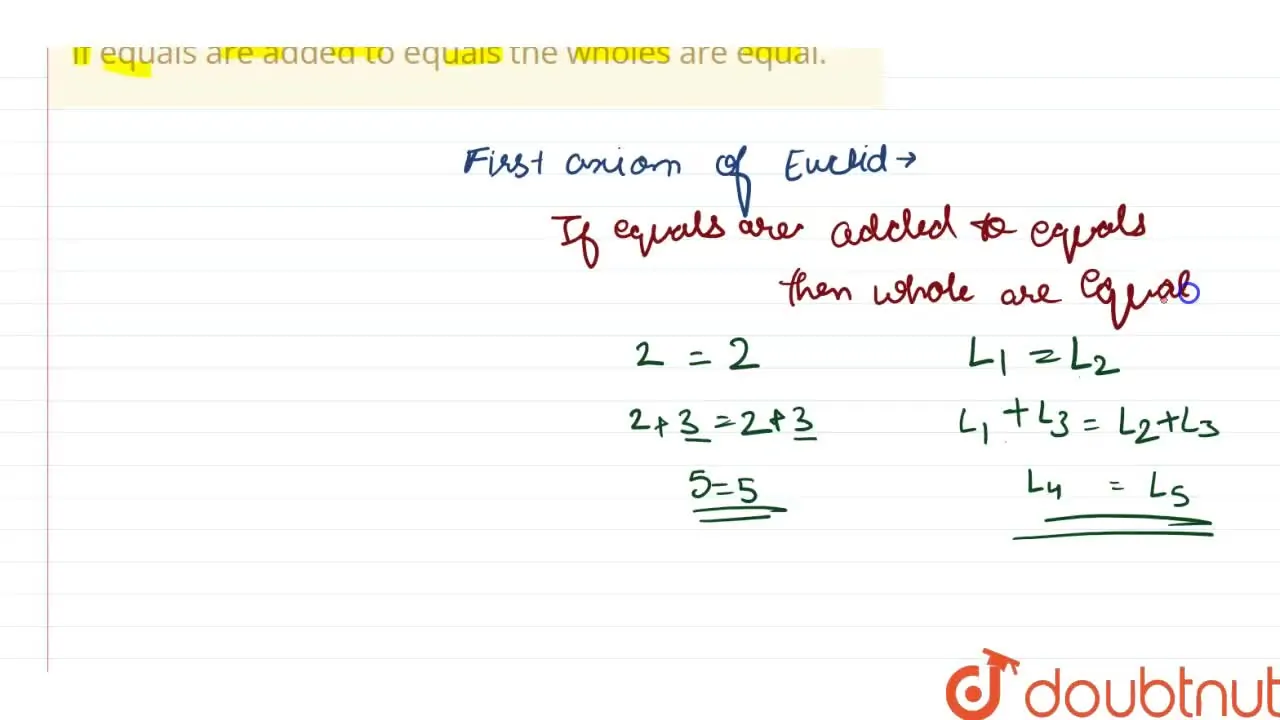 If equals are added to equals the wholes are equal.
First axiom of Euclid →
If equals are added to equals
then whole are equal
2 = 2
L1 = L2
2+3 = 2+3
L1 + L3 = L2 + L3
5=5
L4 = L5
doubtnut